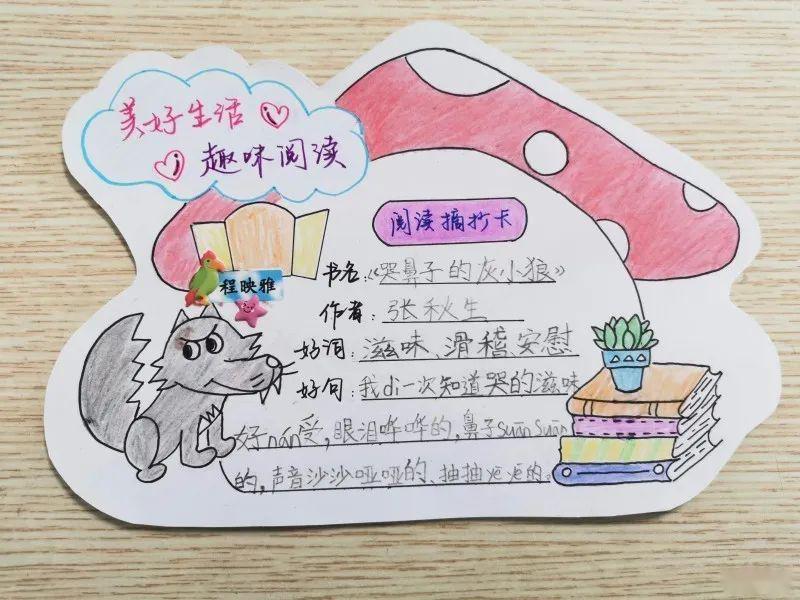 美好生活
趣味阅读
阅读摘抄卡
程映雅
书名:《哭鼻子的灰小狼》
作者:张秋生
好词:滋味、滑稽、安慰
好句:我di一次知道哭的滋味
好nán受,眼泪哗哗的,鼻子suānsuān
的,声音沙沙哑哑的、抽抽噎噎的。